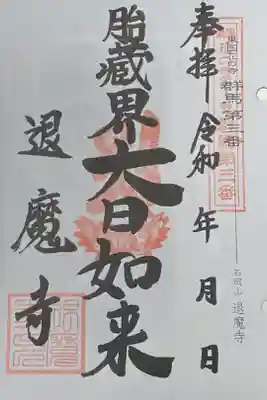 群馬第三番
奉拝 令和 年 月 日
胎蔵界大日如来
退魔寺
石岡山 退魔寺